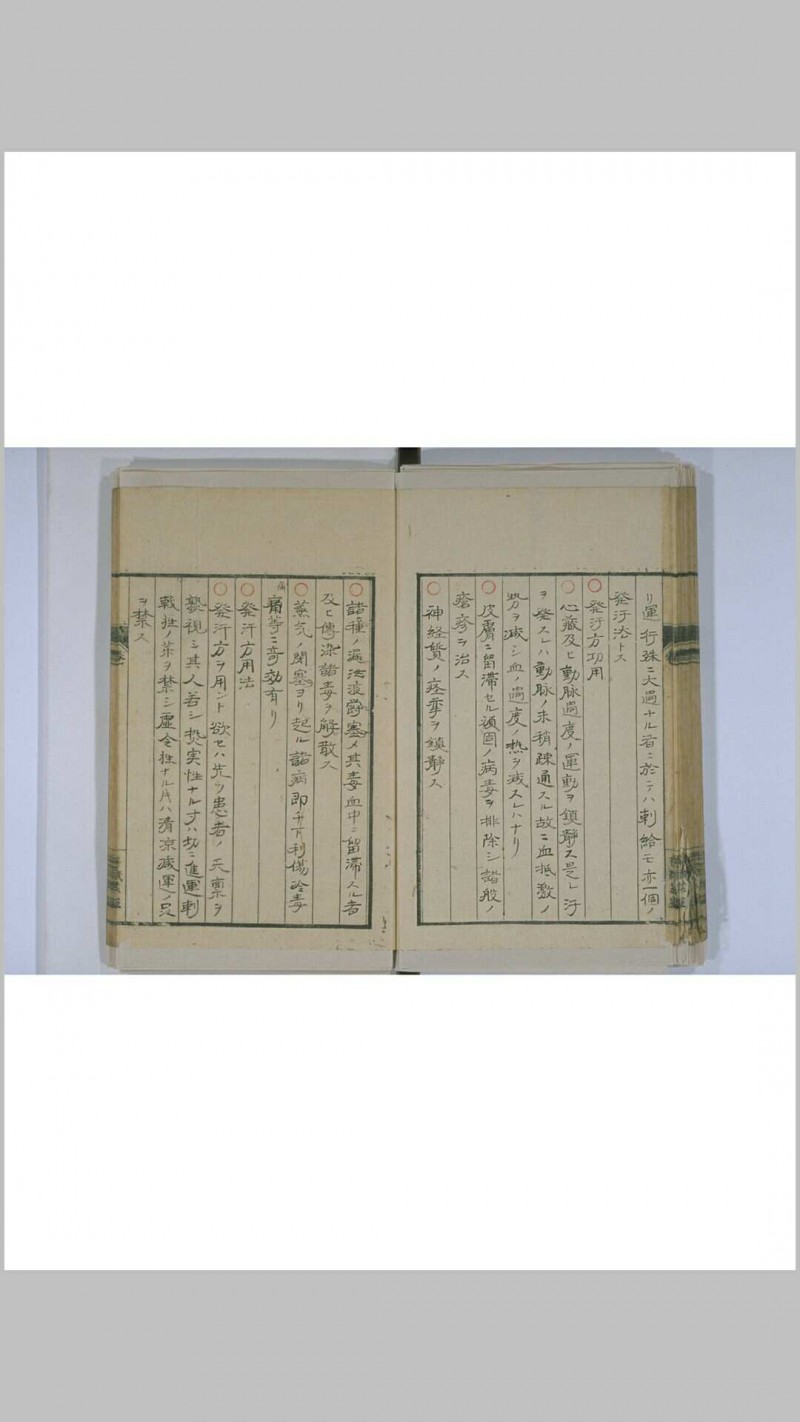 リ運行殊ニ大過ナル者ニ於テハ刺絡モ亦一個ノ
発汗法トス
○発汗方功用
○心臓及ヒ動脈過度ノ運動ヲ鎮静ス是レ汗
ヲ発スレハ動脈ノ末稍疎通スル故ニ血抵激ノ
勢ヲ減シ血ノ過度ノ热ヲ減スレハナリ
○皮膚ニ留滞セル頑固ノ病毒ヲ排除シ諸般ノ
瘡疹ヲ治ス
○神経質ノ痙攣ヲ鎮静ス
○諸種ノ 欝塞メ其毒血中ニ留滞スル者
及ヒ傳染諸毒ヲ解散ス
○蒸気ノ閉塞ヨリ起ル諸病即チ下利傷冷毒
痛等ニ奇効有リ
○発汗方用法
○発汗方ヲ用ント欲セハ先ツ患者ノ天稟ヲ
視シ其人若シ 実性ナル寸ハ切ニ進運刺
戟性ノ薬ヲ禁シ虚 性ナル片ハ清凉減運ノ品
ヲ禁ス